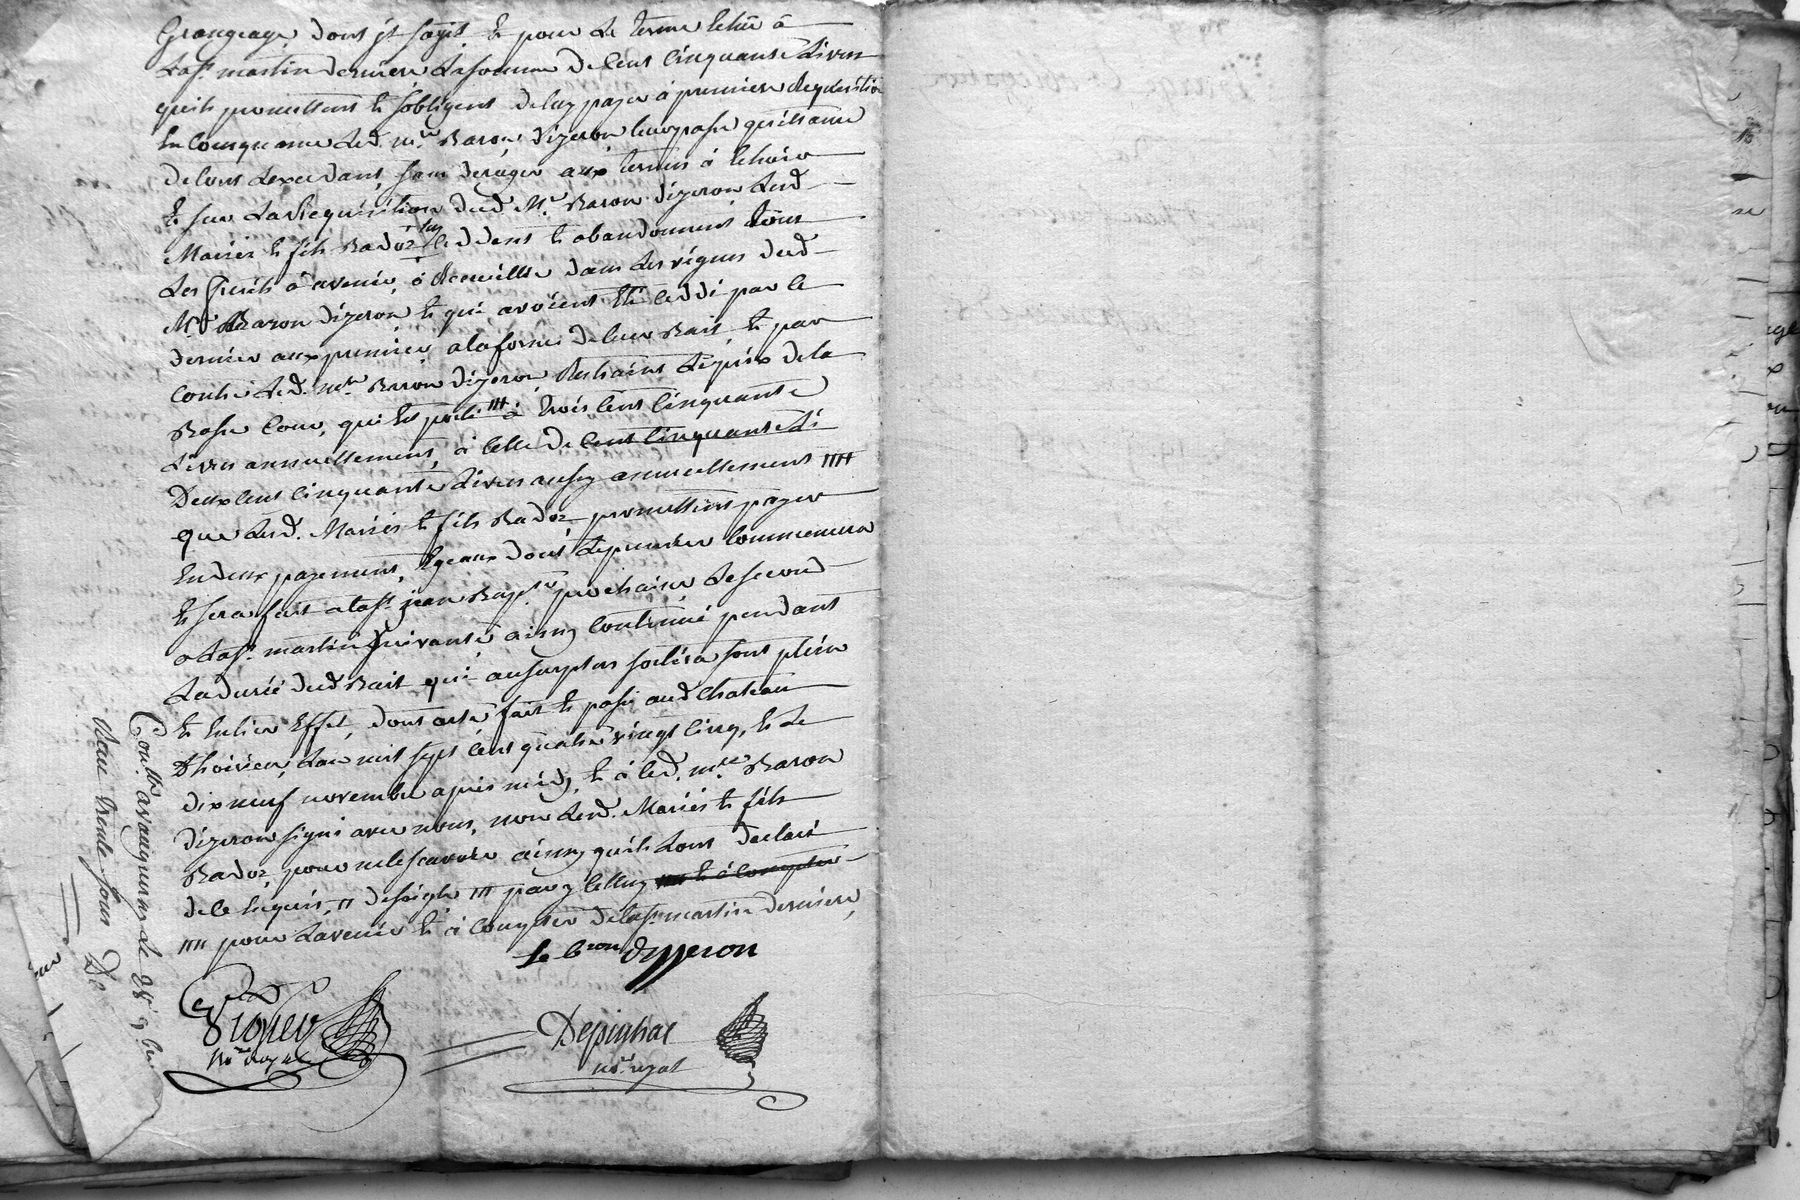 Grangeage dont jl sagit, et pour le terme échu à
la st. martin derniere la somme de cent cinquante livres
quils promettent et sobligent de luy payer à premiere Requisition
En Consequence led. mre. Baron Dizeron leur passe quittance
de tout lexcedant, sans deroger aux termes à echoir
Et sur la Requisition dud. Mr. Baron dizeron lesd
Mariés et fils Badoz luy cèddent et abandonnent tous
Les fruits à avenir, à Recueillir dans les vignes dud
Mr Baron dizeron et qui avoient été ceddé par le
dernier aux premiers, a la forme de leur Bail, et par
Contre led. mre. Baron dizeron Restraint le prix de la
Basse Cour, qui est porté III à trois cent cinquante
Livres annuellement, à celle de cent cinquante Li
Deux cent cinquante livres aussy annuellement IIII
que lesd. Mariés et fils Badoz promettent payer
En deux payements, Egeaux dont le premier commencera
Et sera fait a la st. jean Bapte. prochaine, le second
a la st. martin suivante, ainsy continué pendant
La durée dud Bail qui au surplus sortira sont plein
Et Entier Effet, dont acte fait et passé aud Chateau
Dhoirieu, Lan mil sept cent quatre vingt cinq, et le
dix neuf novembre après midy, et à led. mre Baron
dizeron signé avec nous, non lesd. Mariés et fils
Badoz, pour ne le scavoir ainsy quils lont declaré
de ce Enquis, II III par IIII et à compter
IIII pour lavenir et à compter de la st. martin derniere,
Le bron dyzeron
Nre royal
Depinhac
nre. royal
Conlle. a vaugneray Le 28 9bre